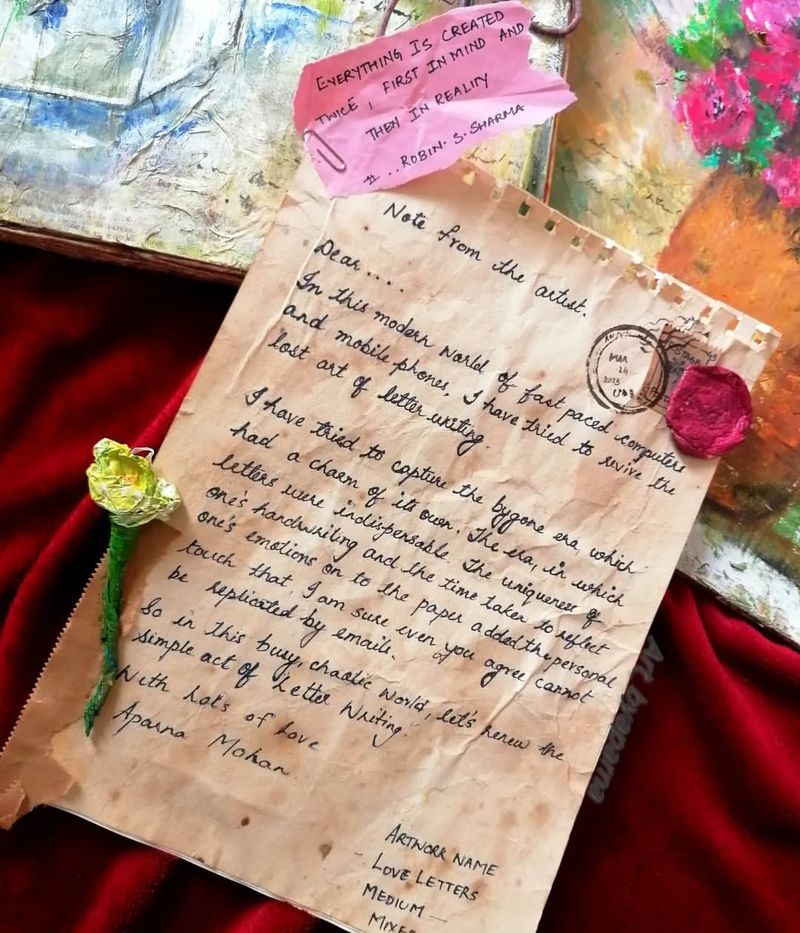 EVERYTHING IS CREATED
TWICE, FIRST IN MIND AND
THEN IN REALITY
ROBIN. S. SHARMA
Note from the artist.
Dear....
In this modern world of fast paced computers
and mobile phones, I have tried to revive the
lost art of letter writing.
I have tried to capture the bygone era, which
had a charm of its own. The era, in which
letters were indispensable. The uniqueness of
one's handwriting and the time taken to reflect
one's emotions on to the paper added the personal
touch that, I am sure even you agree cannot
be replicated by emails.
So in this busy, chaotic world, let's renew the
simple act of Letter Writing.
With Lots of Love
Aparna Mohan
MAR
24
2023
ARTWORK NAME
- LOVE LETTERS
MEDIUM -
Art byaparna